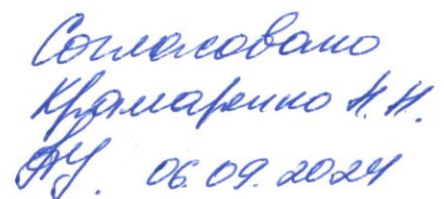 Согласовано
Крамаренко Н.Н.
06.09.2024